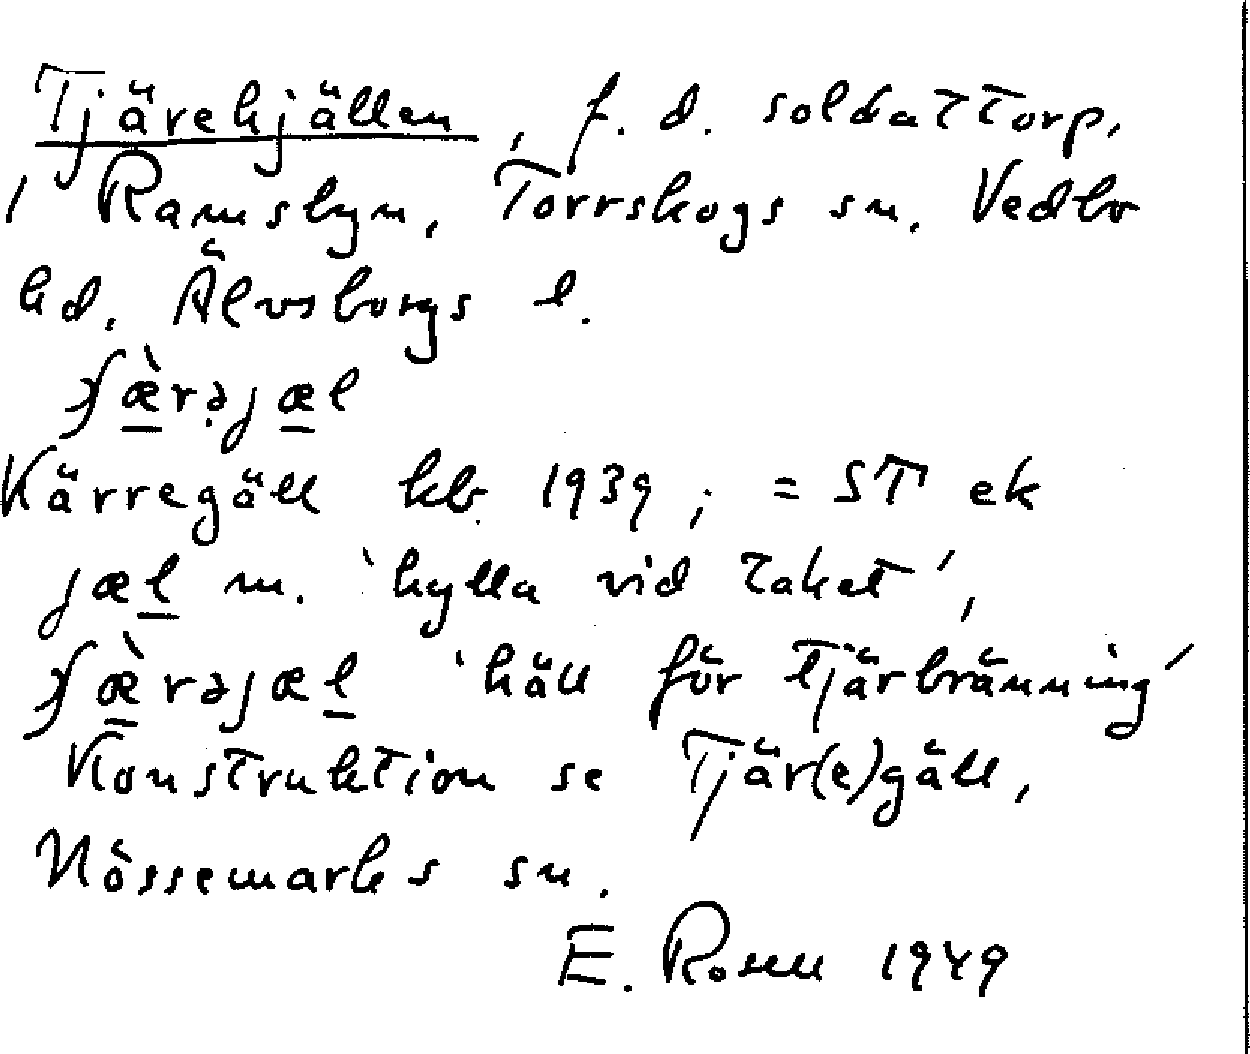 Tjärehjällen, f. d. soldattorp,
i Ramsbyn, Torrskogs sn. Vedbo
hd. Älvsborgs l.
ʃæ̀rəjæl
Kärregäll kb. 1939; = ST ek
jæl m. 'hylla vid taket',
ʃæ̀rəjæl 'häll för tjärbränning'
Konstruktion se Tjär(e)gäll,
Nössemarks sn.
E. Rosell 1949